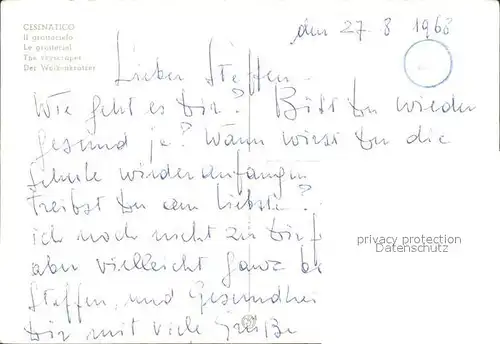 CESENATICO
Il grattacielo
Le gratteciel
The skyscraper
Der Wolkenkratzer
den 27. 8 1968
Lieber Steffen
Wie geht es Dir? Bist Du wieder
gesund ja? Wann wirst Du die
Schule wieder anfangen
Treibst Du am Liebsten?
ich noch nicht zu Dir
aber vielleicht ganz
Steffen, und Gesundhei
Dir mit viele Grüße
privacy protection
Datenschutz